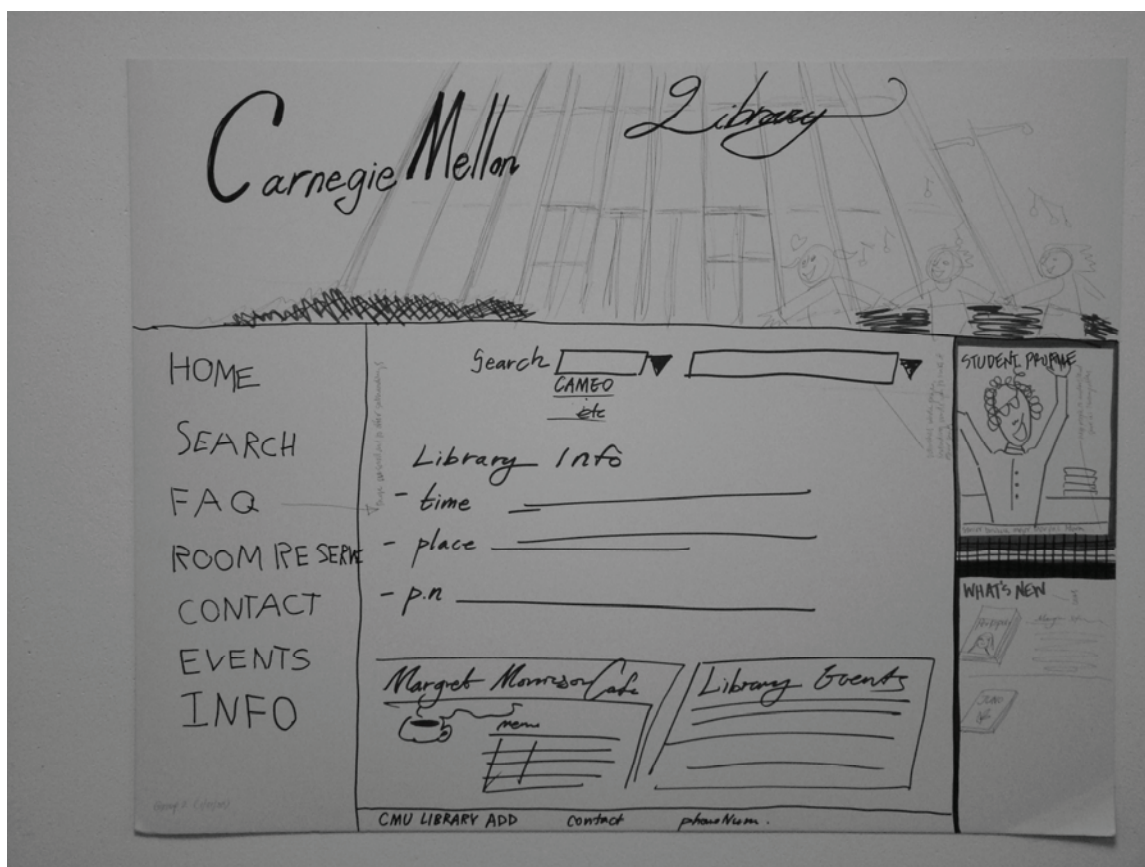 Carnegie Mellon Library
HOME
SEARCH
FAQ
ROOM RESERVE
CONTACT
EVENTS
INFO
Search
CAMEO
etc
Library Info
- time
- place
- p.n
Margret Morrison Cafe
menu
Library Events
STUDENT PROFILE
WHAT'S NEW
JUNO
CMU LIBRARY ADD contact phoneNum.